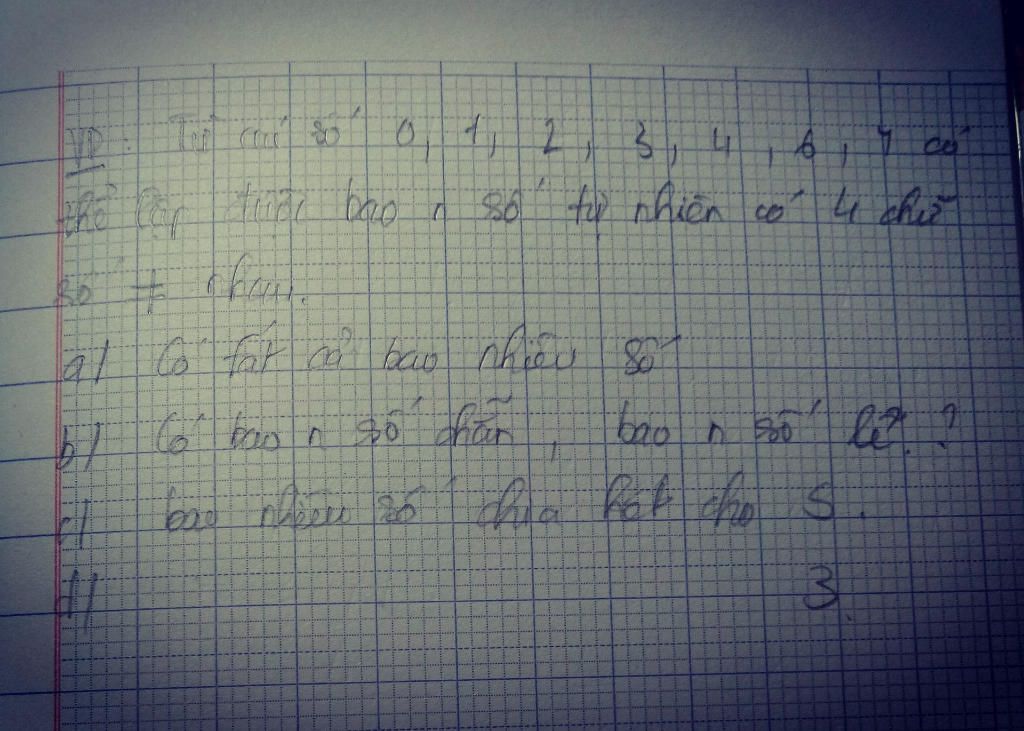 VD: Từ các số 0, 1, 2, 3, 4, 6, 7 có
thể lập được bao n số tự nhiên có 4 chữ
số ≠ nhau.
a/ Có tất cả bao nhiêu số
b/ Có bao n số chẵn, bao n số lẻ?
c/ bao nhiêu số chia hết cho 5.
d/ 3.